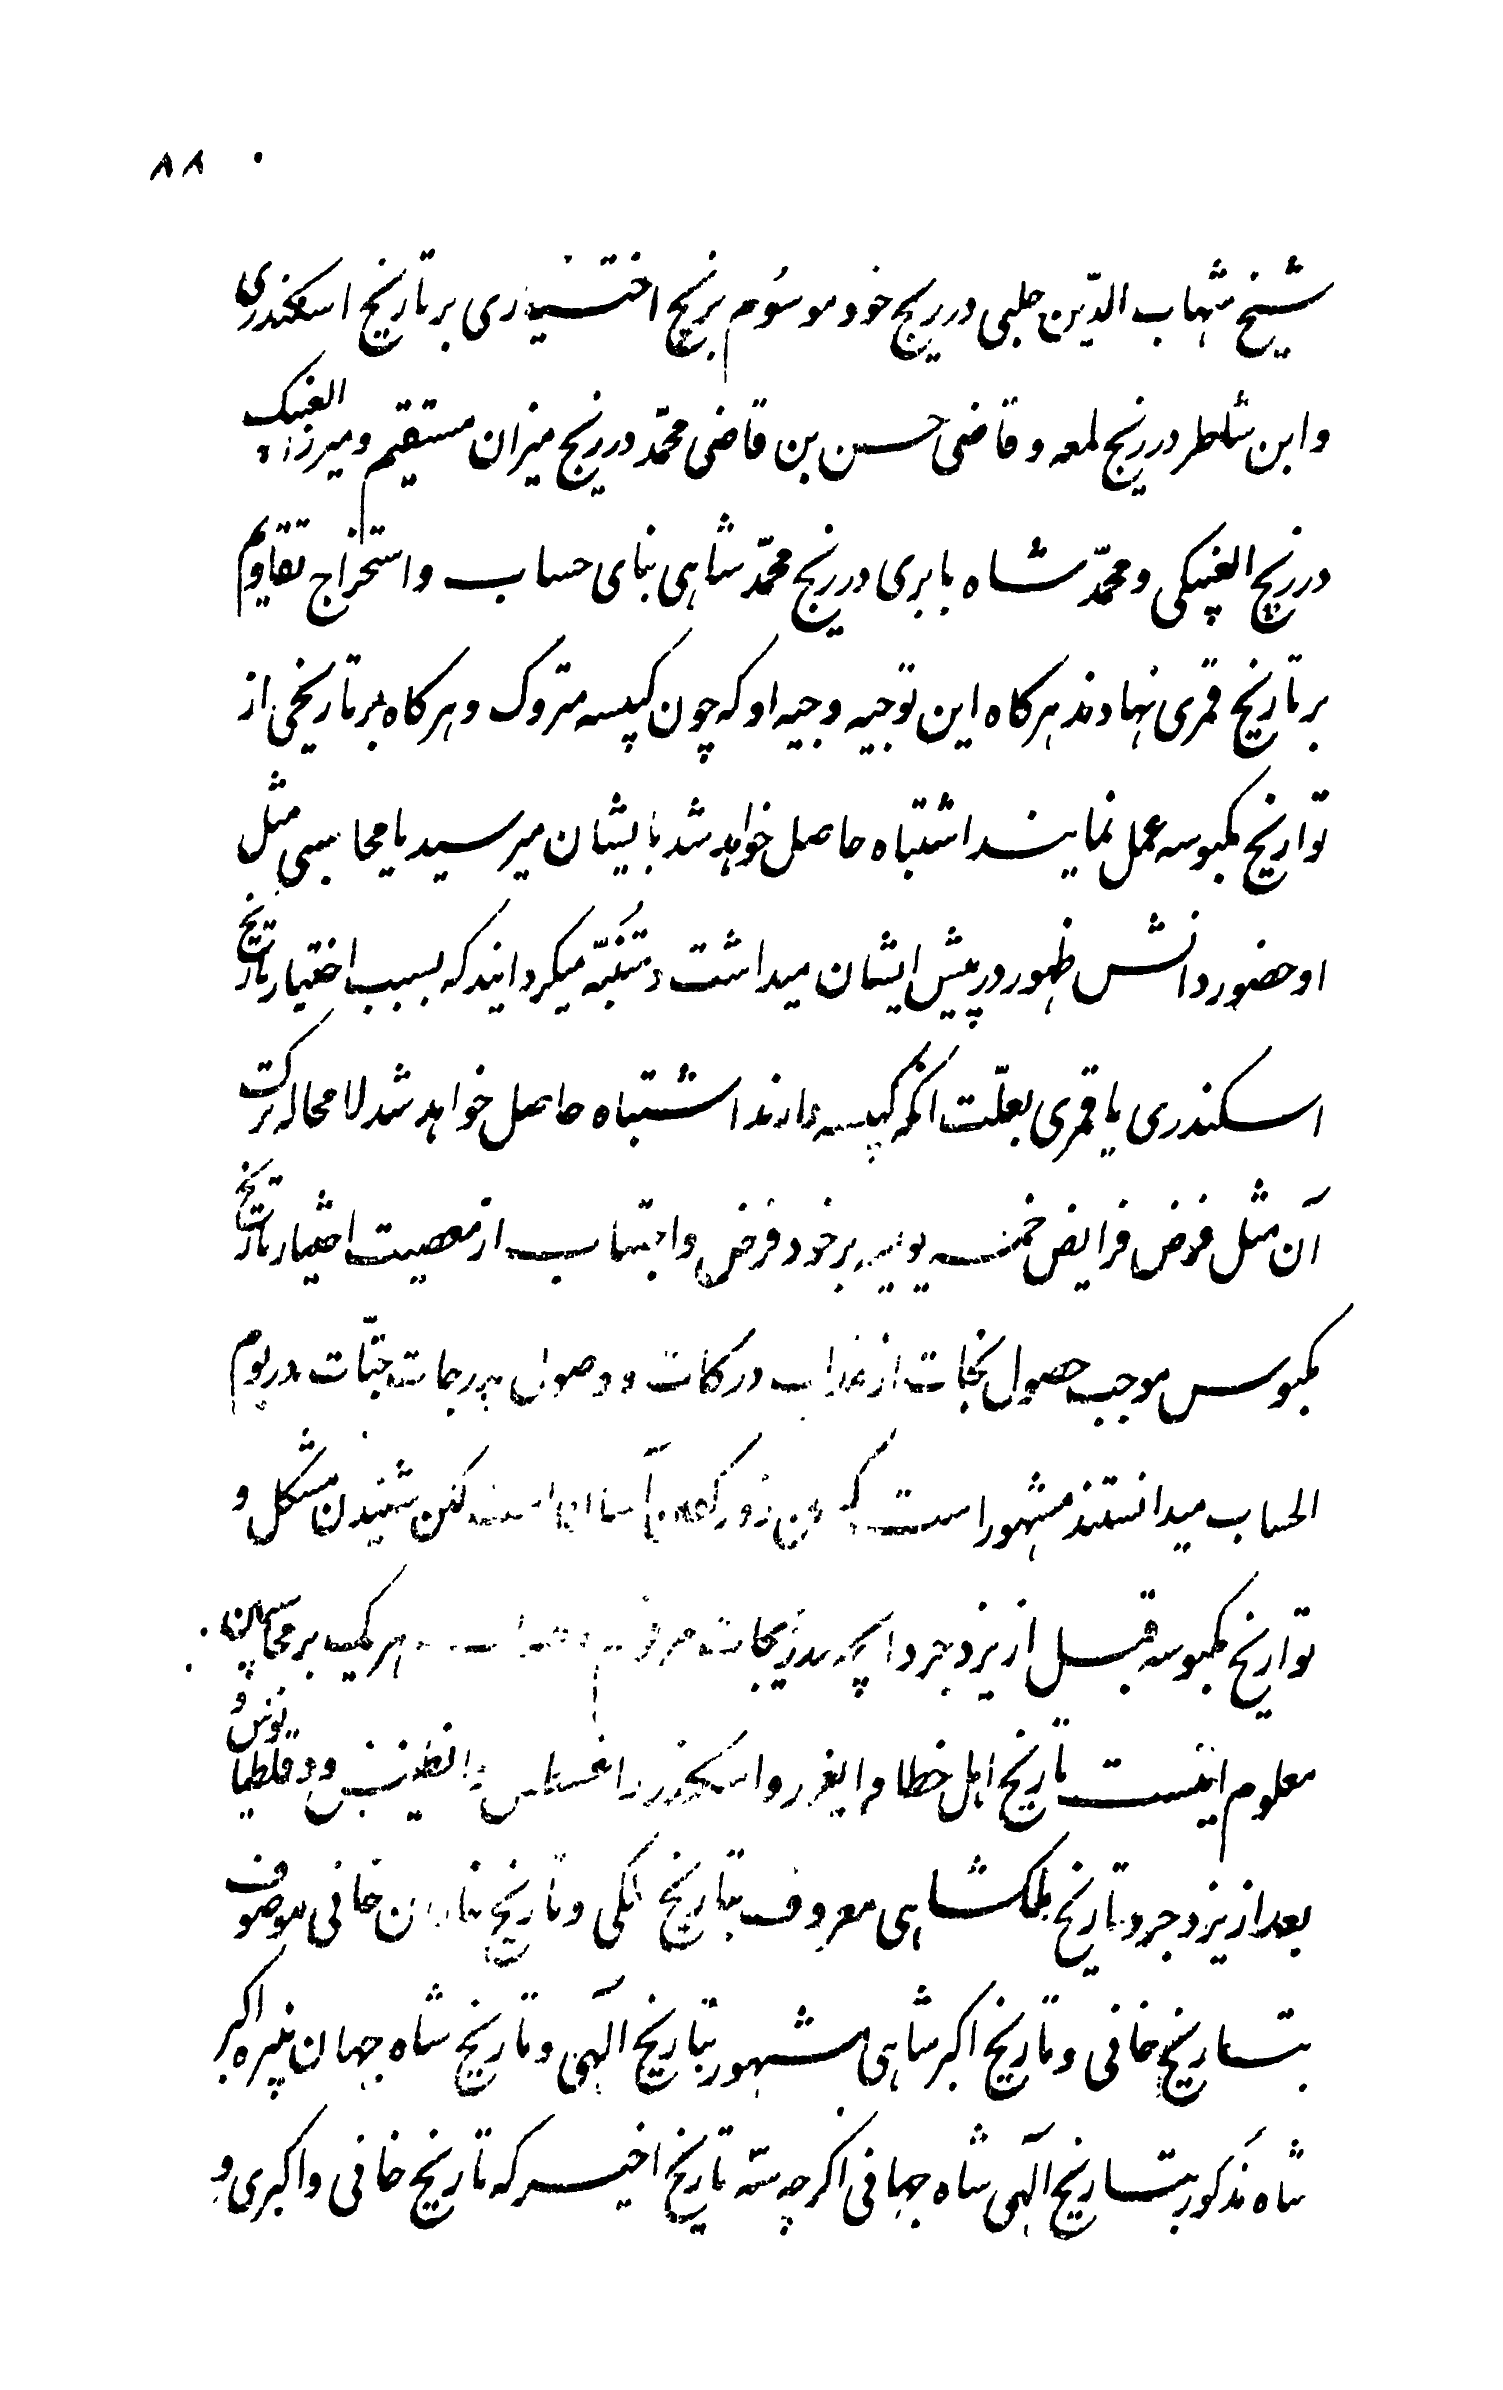 ۸۸
شیخ شهاب الدّین حلبی در زیج خود موسُوم بزیج اختیاری بر تاریخ اسکندری
و ابن شاطر در زیج لمعه و قاضی حسن بن قاضی محمّد در زیج میزان مستقیم و میرزا الغبیک
در زیج الغبیکی و محمّد شاه بابری در زیج محمّد شاهی بنای حساب و استخراج تقاویم
بر تاریخ قمری نهادند هرکاه این توجیه وجیه او که چون کبیسه متروک و هرکاه بر تاریخی از
تواریخ مکبوسه عمل نمایند اشتباه حاصل خواهد شد بایشان میرسید یا محاسبی مثل
او حضور دانش ظهور در پیش ایشان میداشت و متنُبّه میکردانید که بسبب اختیار تاریخ
اسکندری یا قمری بعلّت آنکه کبیسه دارند اشتباه حاصل خواهد شد لامحاله ترک
آن مثل فرض فرایض خمسه یومیه بر خود فرض و اجتناب از معصیت اختیار تاریخ
مکبوس موجب حصول نجات از عذاب درکات و وصول بدرجات جنّات در یوم
الحساب میدانستند مشهور است که سخن زور کفتن آسان است لکن شنیدن مشکل و
تواریخ مکبوسه قبل از یزدجرد انچه در زیجات هر یک بر محاسبین
معلوم اینست تاریخ اهل خطا و ایغر و اسکندر و اغسطس و انطینس و دقلطیانوس و
بعد از یزدجرد تاریخ ملکشاهی معروف بتاریخ ملکی و تاریخ خانی موصوف
بتاریخ خانی و تاریخ اکبر شاهی مشهور بتاریخ آلهی و تاریخ شاه جهان نبیره اکبر
شاه مذکور بتاریخ آلهی شاه جهانی اکرچه سّه تاریخ اخیر که تاریخ خانی و اکبری و